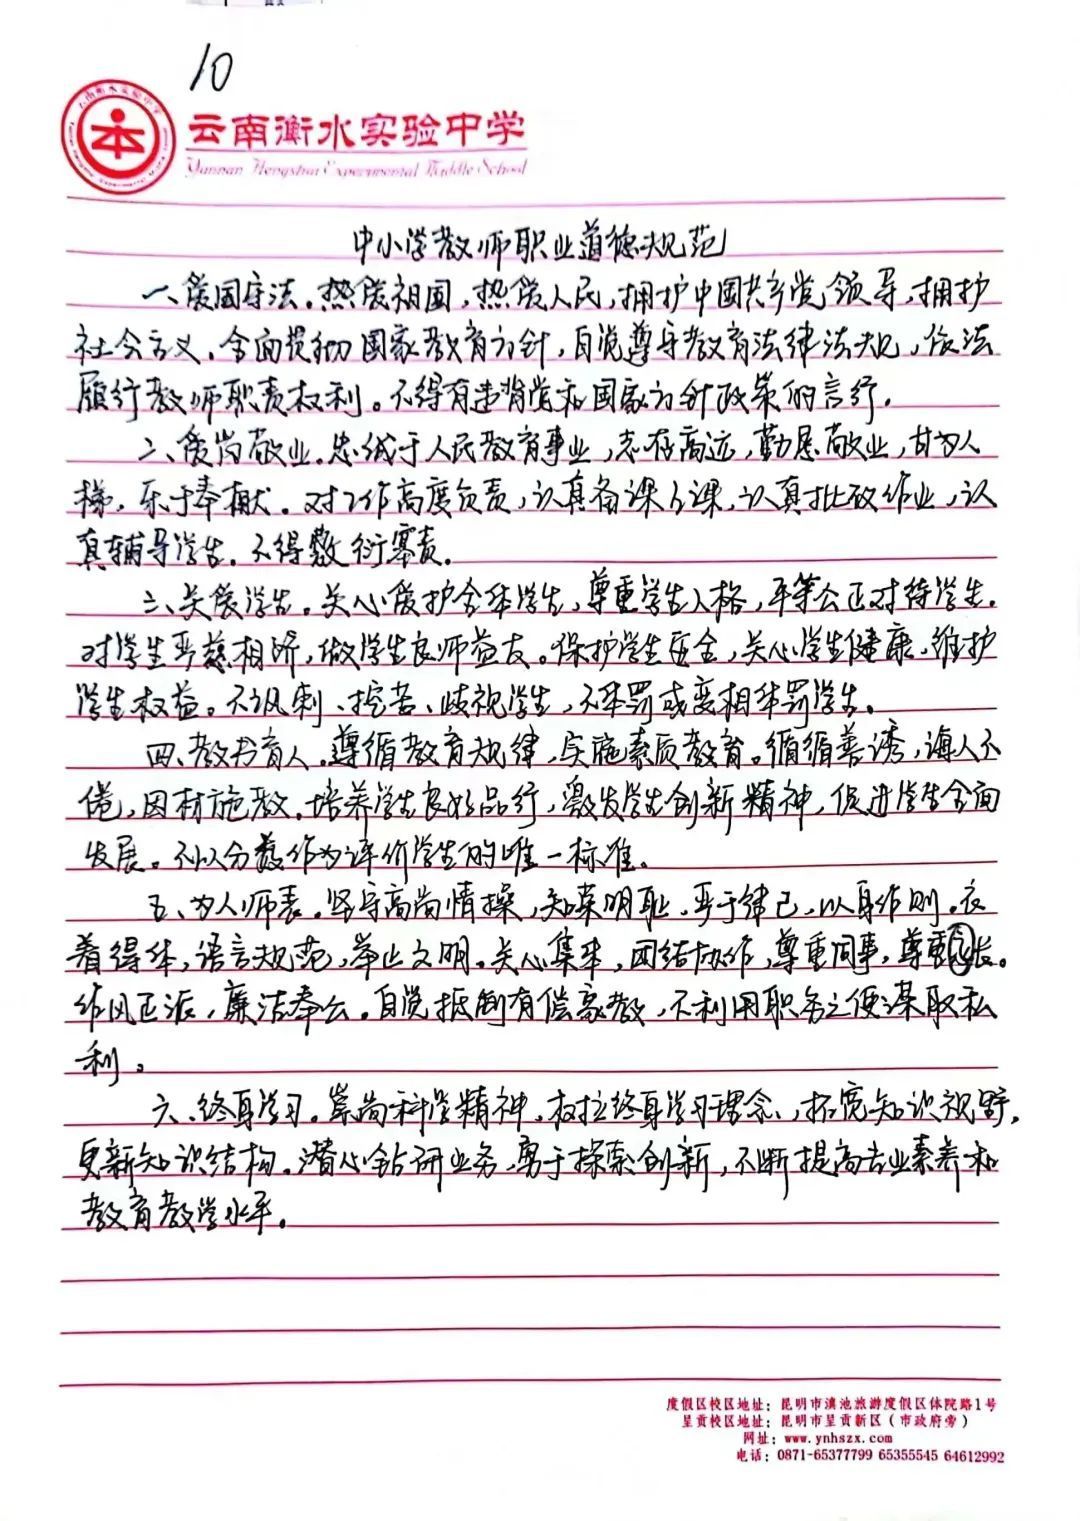 10
云南衡水实验中学
Yunnan Hengshui Experimental Middle School
中小学教师职业道德规范
一、爱国守法。热爱祖国，热爱人民，拥护中国共产党领导，拥护
社会主义。全面贯彻国家教育方针，自觉遵守教育法律法规，依法
履行教师职责权利。不得有违背党和国家方针政策的言行。
二、爱岗敬业。忠诚于人民教育事业，志存高远，勤恳敬业，甘为人
梯，乐于奉献。对工作高度负责，认真备课上课，认真批改作业，认
真辅导学生。不得敷衍塞责。
三、关爱学生。关心爱护全体学生，尊重学生人格，平等公正对待学生。
对学生严慈相济，做学生良师益友。保护学生安全，关心学生健康，维护
学生权益。不讽刺、挖苦、歧视学生，不体罚或变相体罚学生。
四、教书育人。遵循教育规律，实施素质教育。循循善诱，诲人不
倦，因材施教。培养学生良好品行，激发学生创新精神，促进学生全面
发展。不以分数作为评价学生的唯一标准。
五、为人师表。坚守高尚情操，知荣明耻，严于律己，以身作则。衣
着得体，语言规范，举止文明。关心集体，团结协作，尊重同事，尊重家长。
作风正派，廉洁奉公。自觉抵制有偿家教，不利用职务之便谋取私
利。
六、终身学习。崇尚科学精神，树立终身学习理念，拓宽知识视野，
更新知识结构。潜心钻研业务，勇于探索创新，不断提高专业素养和
教育教学水平。
度假区校区地址：昆明市滇池旅游度假区体院路1号
呈贡校区地址：昆明市呈贡新区（市政府旁）
网址：www.ynhszx.com
电话：0871-65377799 65355545 64612992